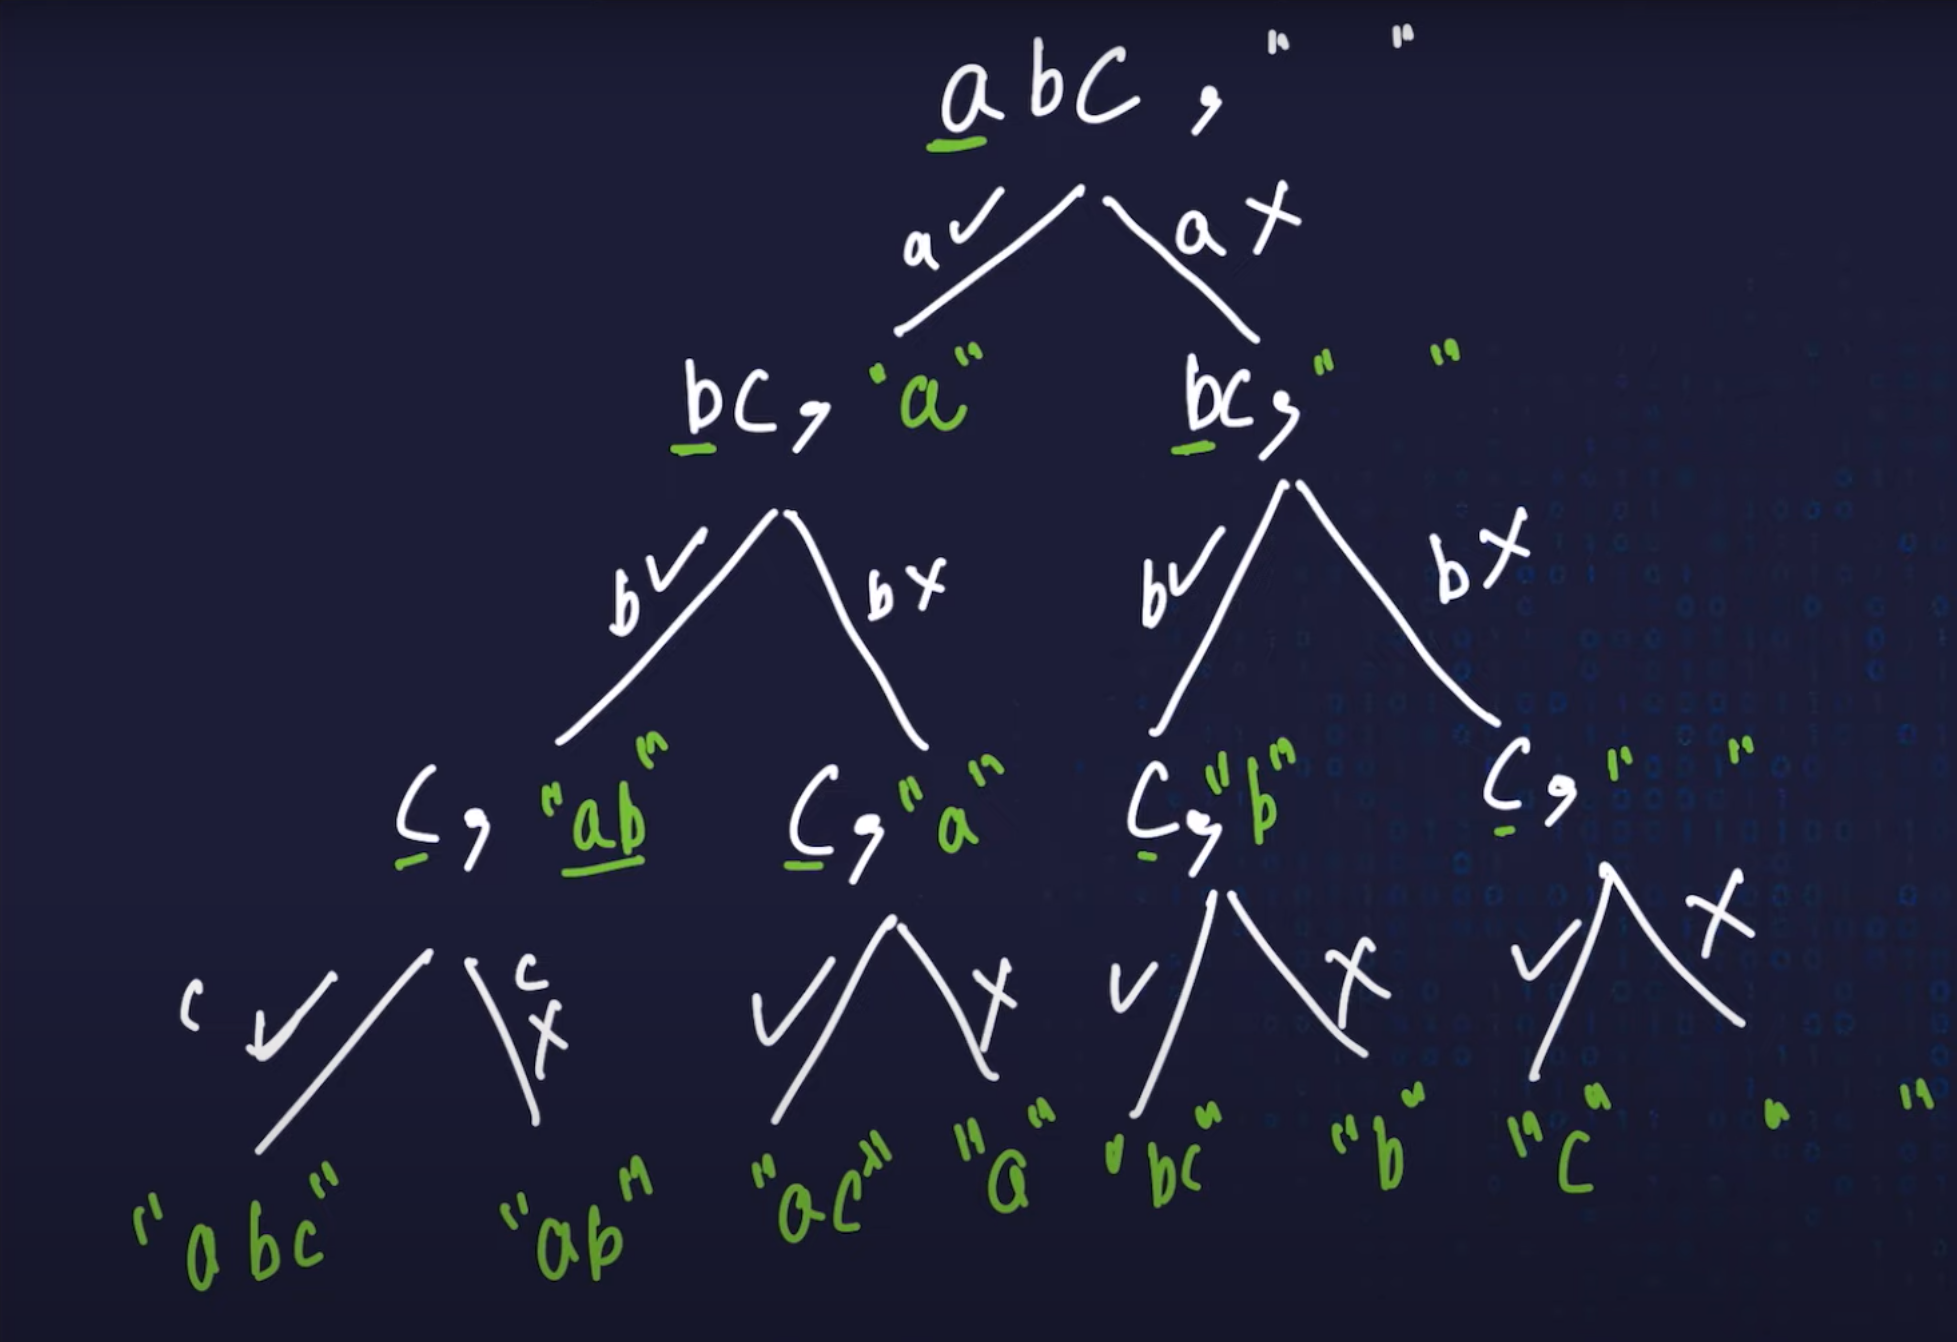 abc, " "
a✓ a✗
bc, "a" bc, " "
b✓ b✗ b✓ b✗
c, "ab" c, "a" c, "b" c, " "
c✓ c✗ ✓ ✗ ✓ ✗ ✓ ✗
"abc" "ab" "ac" "a" "bc" "b" "c" " "